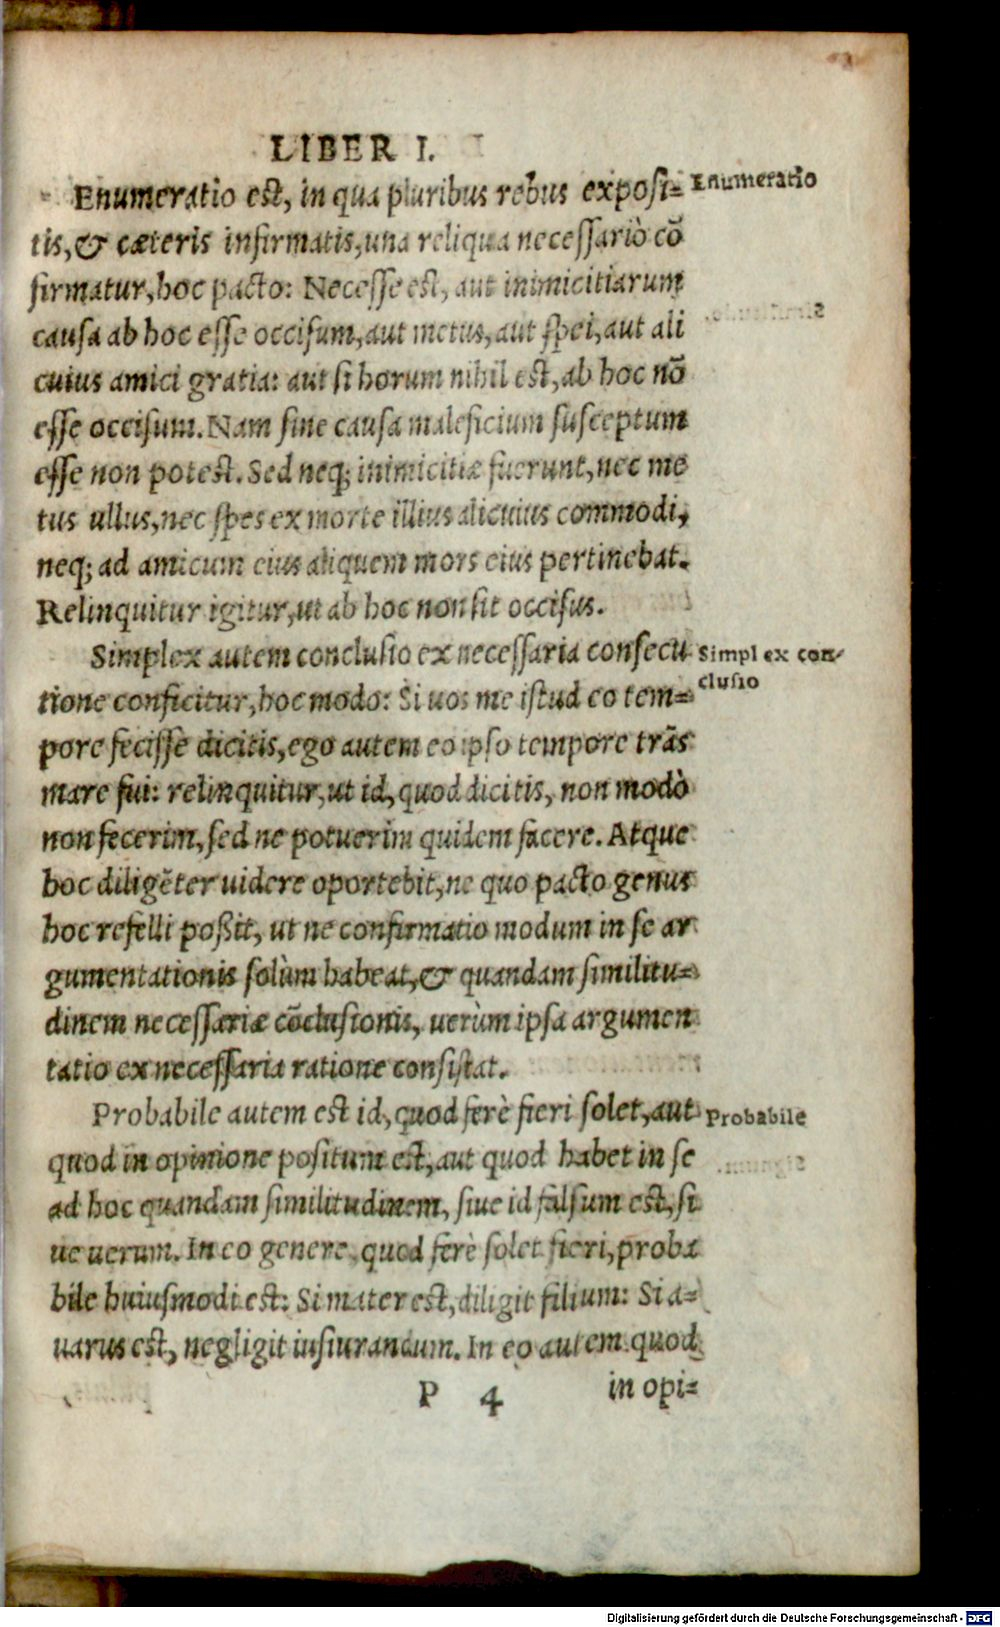 LIBER I.
Enumeratio est, in qua pluribus rebus exposi-
Enumeratio
tis, & cæteris infirmatis, una reliqua necessariò cō
firmatur, hoc pacto: Necesse est, aut inimicitiarum
causa ab hoc esse occisum, aut metus, aut spei, aut ali
cuius amici gratia: aut si horum nihil est, ab hoc nō
esse occisum. Nam sine causa maleficium susceptum
esse non potest. Sed neq; inimicitiæ fuerunt, nec me
tus ullus, nec spes ex morte illius alicuius commodi,
neq; ad amicum eius aliquem mors eius pertinebat.
Relinquitur igitur, ut ab hoc non sit occisus.
Simplex autem conclusio ex necessaria consecu
Simplex con-
clusio
tione conficitur, hoc modo: Si uos me istud eo tem-
pore fecisse dicitis, ego autem eo ipso tempore trās
mare fui: relinquitur, ut id, quod dicitis, non modò
non fecerim, sed ne potuerim quidem facere. Atque
hoc diligēter uidere oportebit, ne quo pacto genus
hoc refelli poßit, ut ne confirmatio modum in se ar
gumentationis solùm habeat, & quandam similitu-
dinem necessariæ cōclusionis, uerùm ipsa argumen
tatio ex necessaria ratione consistat.
Probabile autem est id, quod ferè fieri solet, aut
Probabile
quod in opinione positum est, aut quod habet in se
ad hoc quandam similitudinem, siue id falsum est, si
ue uerum. In eo genere, quod ferè solet fieri, proba
bile huiusmodi est: Si mater est, diligit filium: Si a-
uarus est, negligit iusiurandum. In eo autem quod
P 4
in opi-
Digitalisierung gefördert durch die Deutsche Forschungsgemeinschaft - DFG